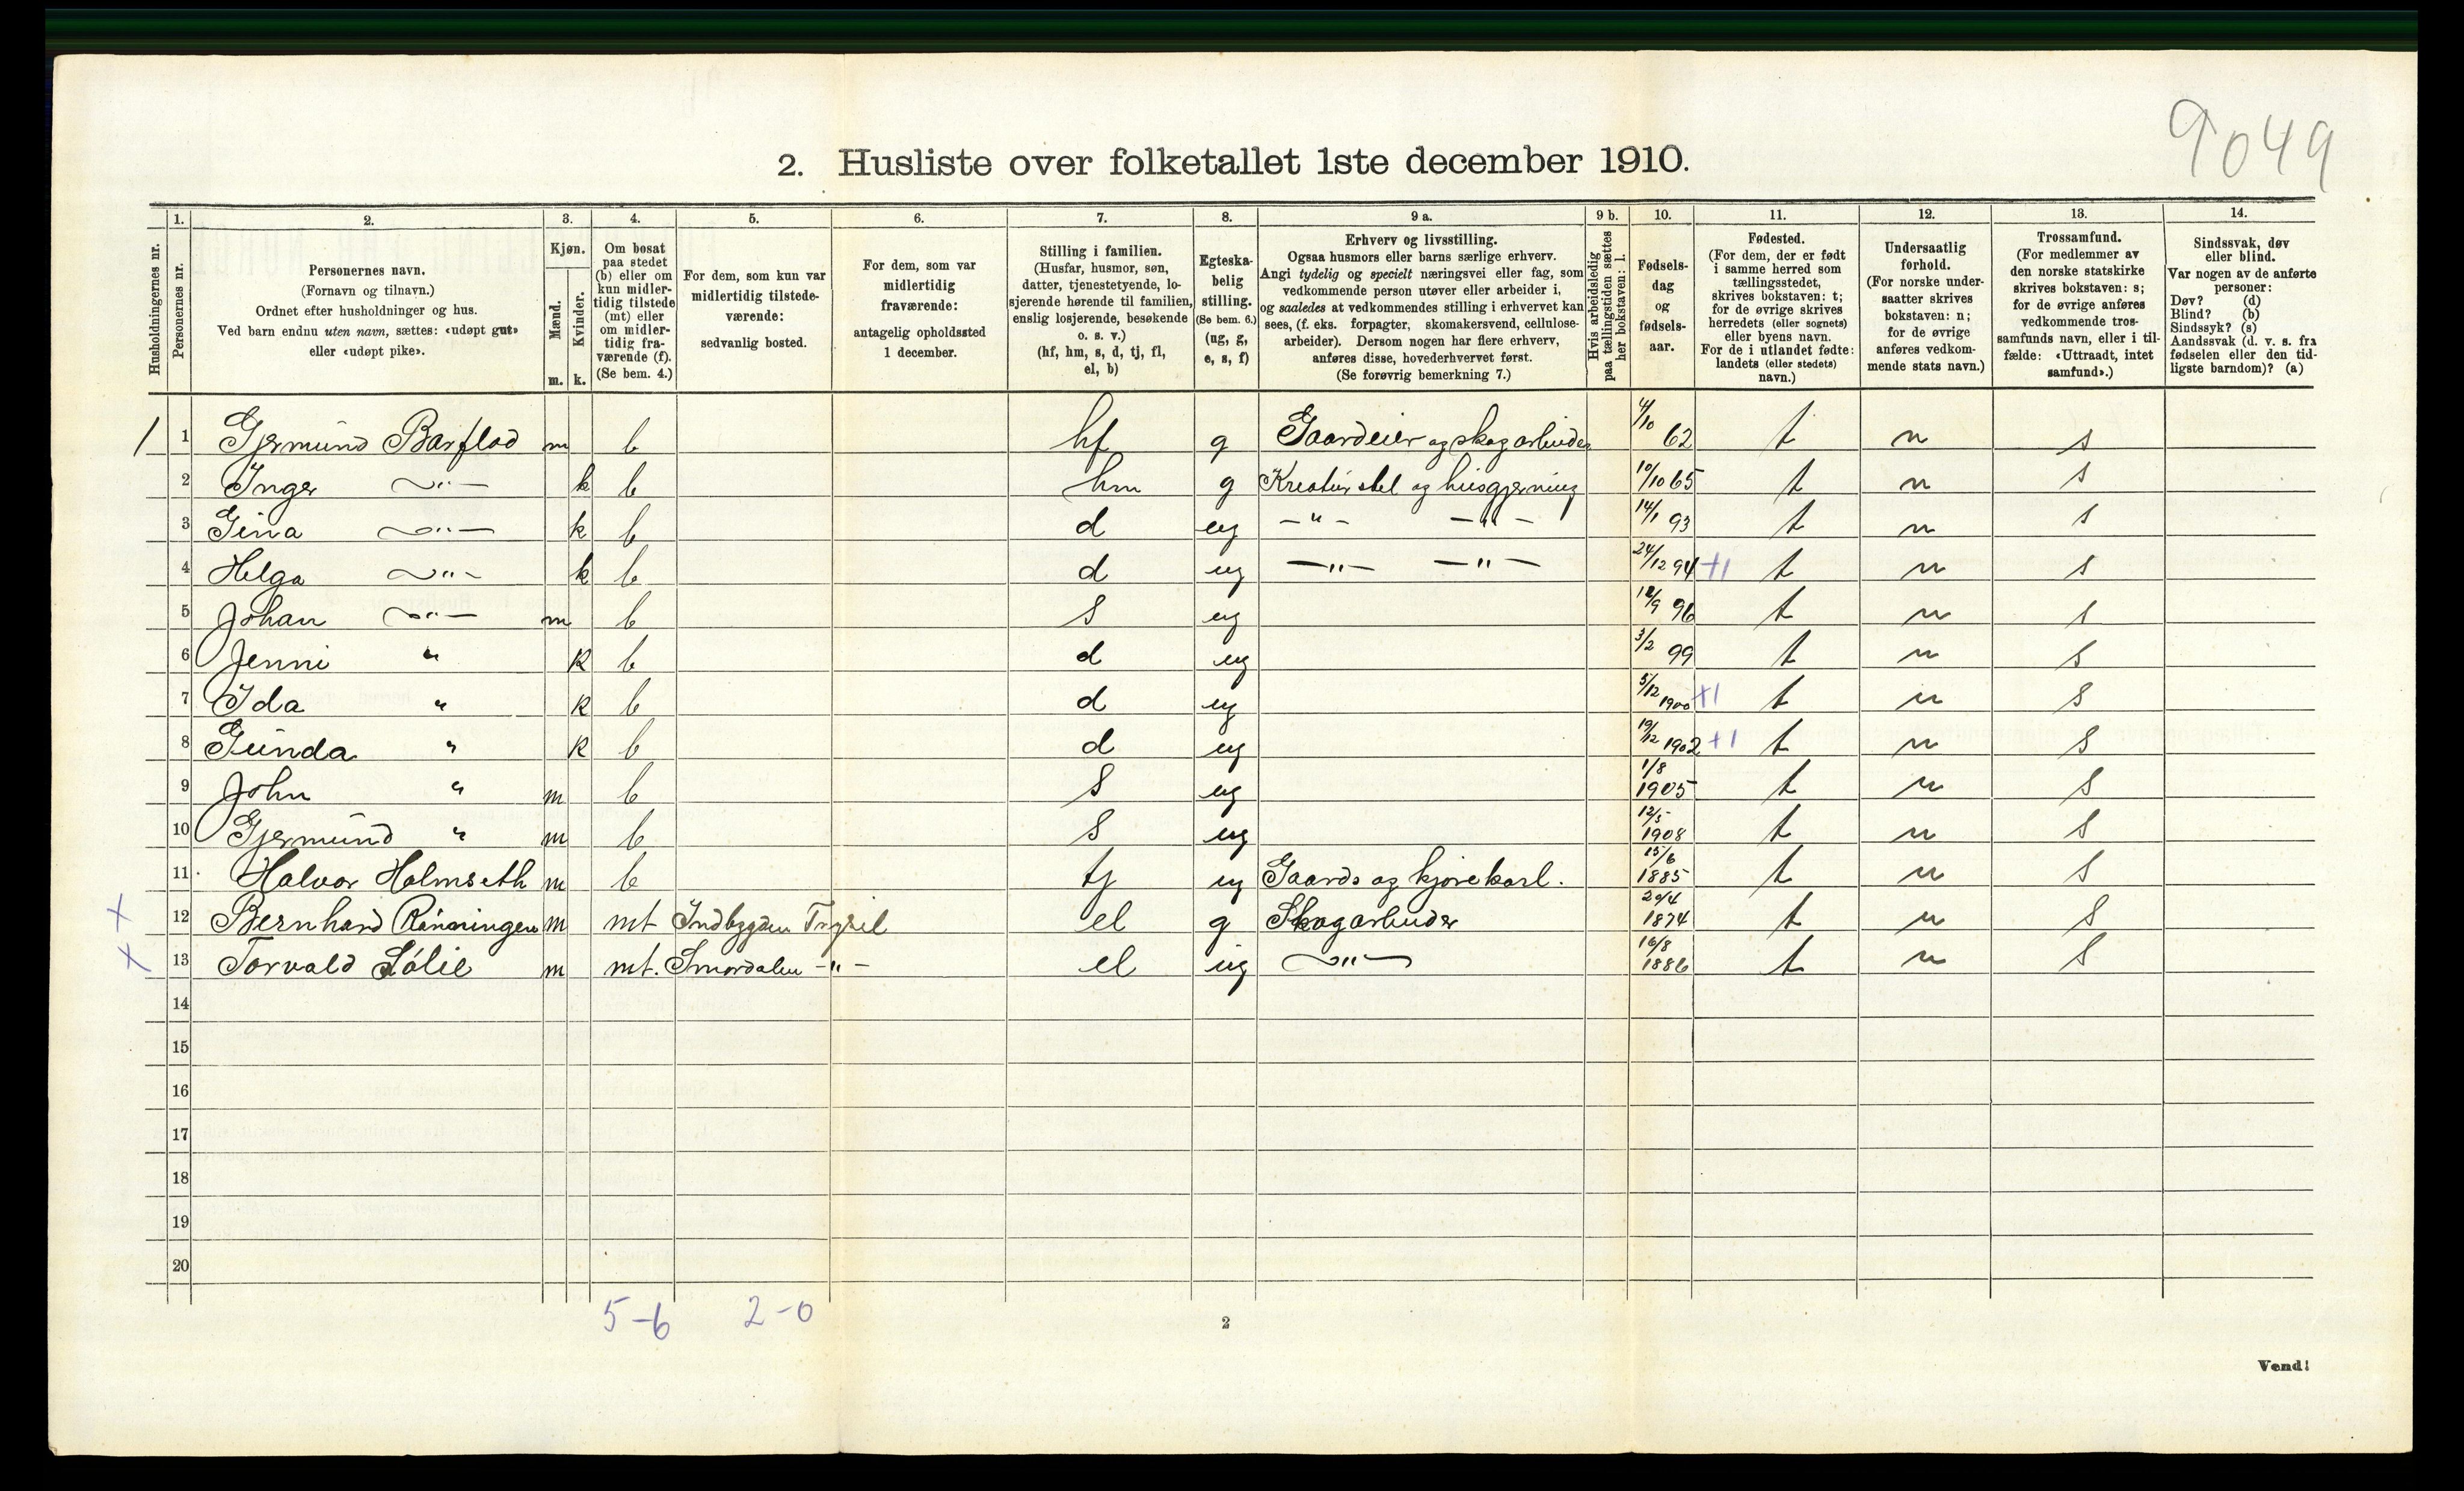 9049
2. Husliste over folketallet 1ste december 1910.
Husholdningernes nr.
1. Personernes nr.
2. Personernes navn. (Fornavn og tilnavn.) Ordnet efter husholdninger og hus. Ved barn endnu uten navn, sættes: «udøpt gut» eller «udøpt pike».
3. Kjøn. Mænd. m. Kvinder. k.
4. Om bosat paa stedet (b) eller om kun midlertidig tilstede (mt) eller om midlertidig fraværende (f). (Se bem. 4.)
5. For dem, som kun var midlertidig tilstedeværende: sedvanlig bosted.
6. For dem, som var midlertidig fraværende: antagelig opholdssted 1 december.
7. Stilling i familien. (Husfar, husmor, søn, datter, tjenestetyende, losjerende hørende til familien, enslig losjerende, besøkende o. s. v.) (hf, hm, s, d, tj, fl, el, b)
8. Egteskabelig stilling. (Se bem. 6.) (ug, g, e, s, f)
9 a. Erhverv og livsstilling. Ogsaa husmors eller barns særlige erhverv. Angi tydelig og specielt næringsvei eller fag, som vedkommende person utøver eller arbeider i, og saaledes at vedkommendes stilling i erhvervet kan sees, (f. eks. forpagter, skomakersvend, cellulosearbeider). Dersom nogen har flere erhverv, anføres disse, hovederhvervet først. (Se forøvrig bemerkning 7.)
9 b. Hvis arbeidsledig paa tællingstiden sættes her bokstaven: l.
10. Fødselsdag og fødselsaar.
11. Fødested. (For dem, der er født i samme herred som tællingsstedet, skrives bokstaven: t; for de øvrige skrives herredets (eller sognets) eller byens navn. For de i utlandet fødte: landets (eller stedets) navn.)
12. Undersaatlig forhold. (For norske undersaatter skrives bokstaven: n; for de øvrige anføres vedkommende stats navn.)
13. Trossamfund. (For medlemmer av den norske statskirke skrives bokstaven: s; for de øvrige anføres vedkommende trossamfunds navn, eller i tilfælde: «Uttraadt, intet samfund».)
14. Sindssvak, døv eller blind. Var nogen av de anførte personer: Døv? (d) Blind? (b) Sindssyk? (s) Aandssvak (d. v. s. fra fødselen eller den tidligste barndom)? (a)
1 1 Gjermund Barflod m b hf g Gaardeier og skogarbeider 4/10 62 t n s
2 Inger —"— k b hm g Kreaturstel og husgjerning 10/10 65 t n s
3 Gina —"— k b d ug —"— —"— 14/1 93 t n s
4 Helga —"— k b d ug —"— —"— 24/12 94 +1 t n s
5 Johan —"— m b s ug 12/9 96 t n s
6 Jenni " k b d ug 3/2 99 t n s
7 Ida " k b d ug 5/12 1900 +1 t n s
8 Gunda " k b d ug 19/12 1902 +1 t n s
9 John " m b s ug 1/8 1905 t n s
10 Gjermund " m b s ug 12/5 1908 t n s
11 Halvor Holmseth m b tj ug Gaards og kjørekarl. 15/6 1885 t n s
x 12 Bernhard Rønningen m mt Indbygden Trysil el g Skogarbeider 20/4 1874 t n s
x 13 Torvald Sølie m mt. Smordalen —"— el ug —"— 16/8 1886 t n s
14
15
16
17
18
19
20
5-6 2-0
2
Vend!